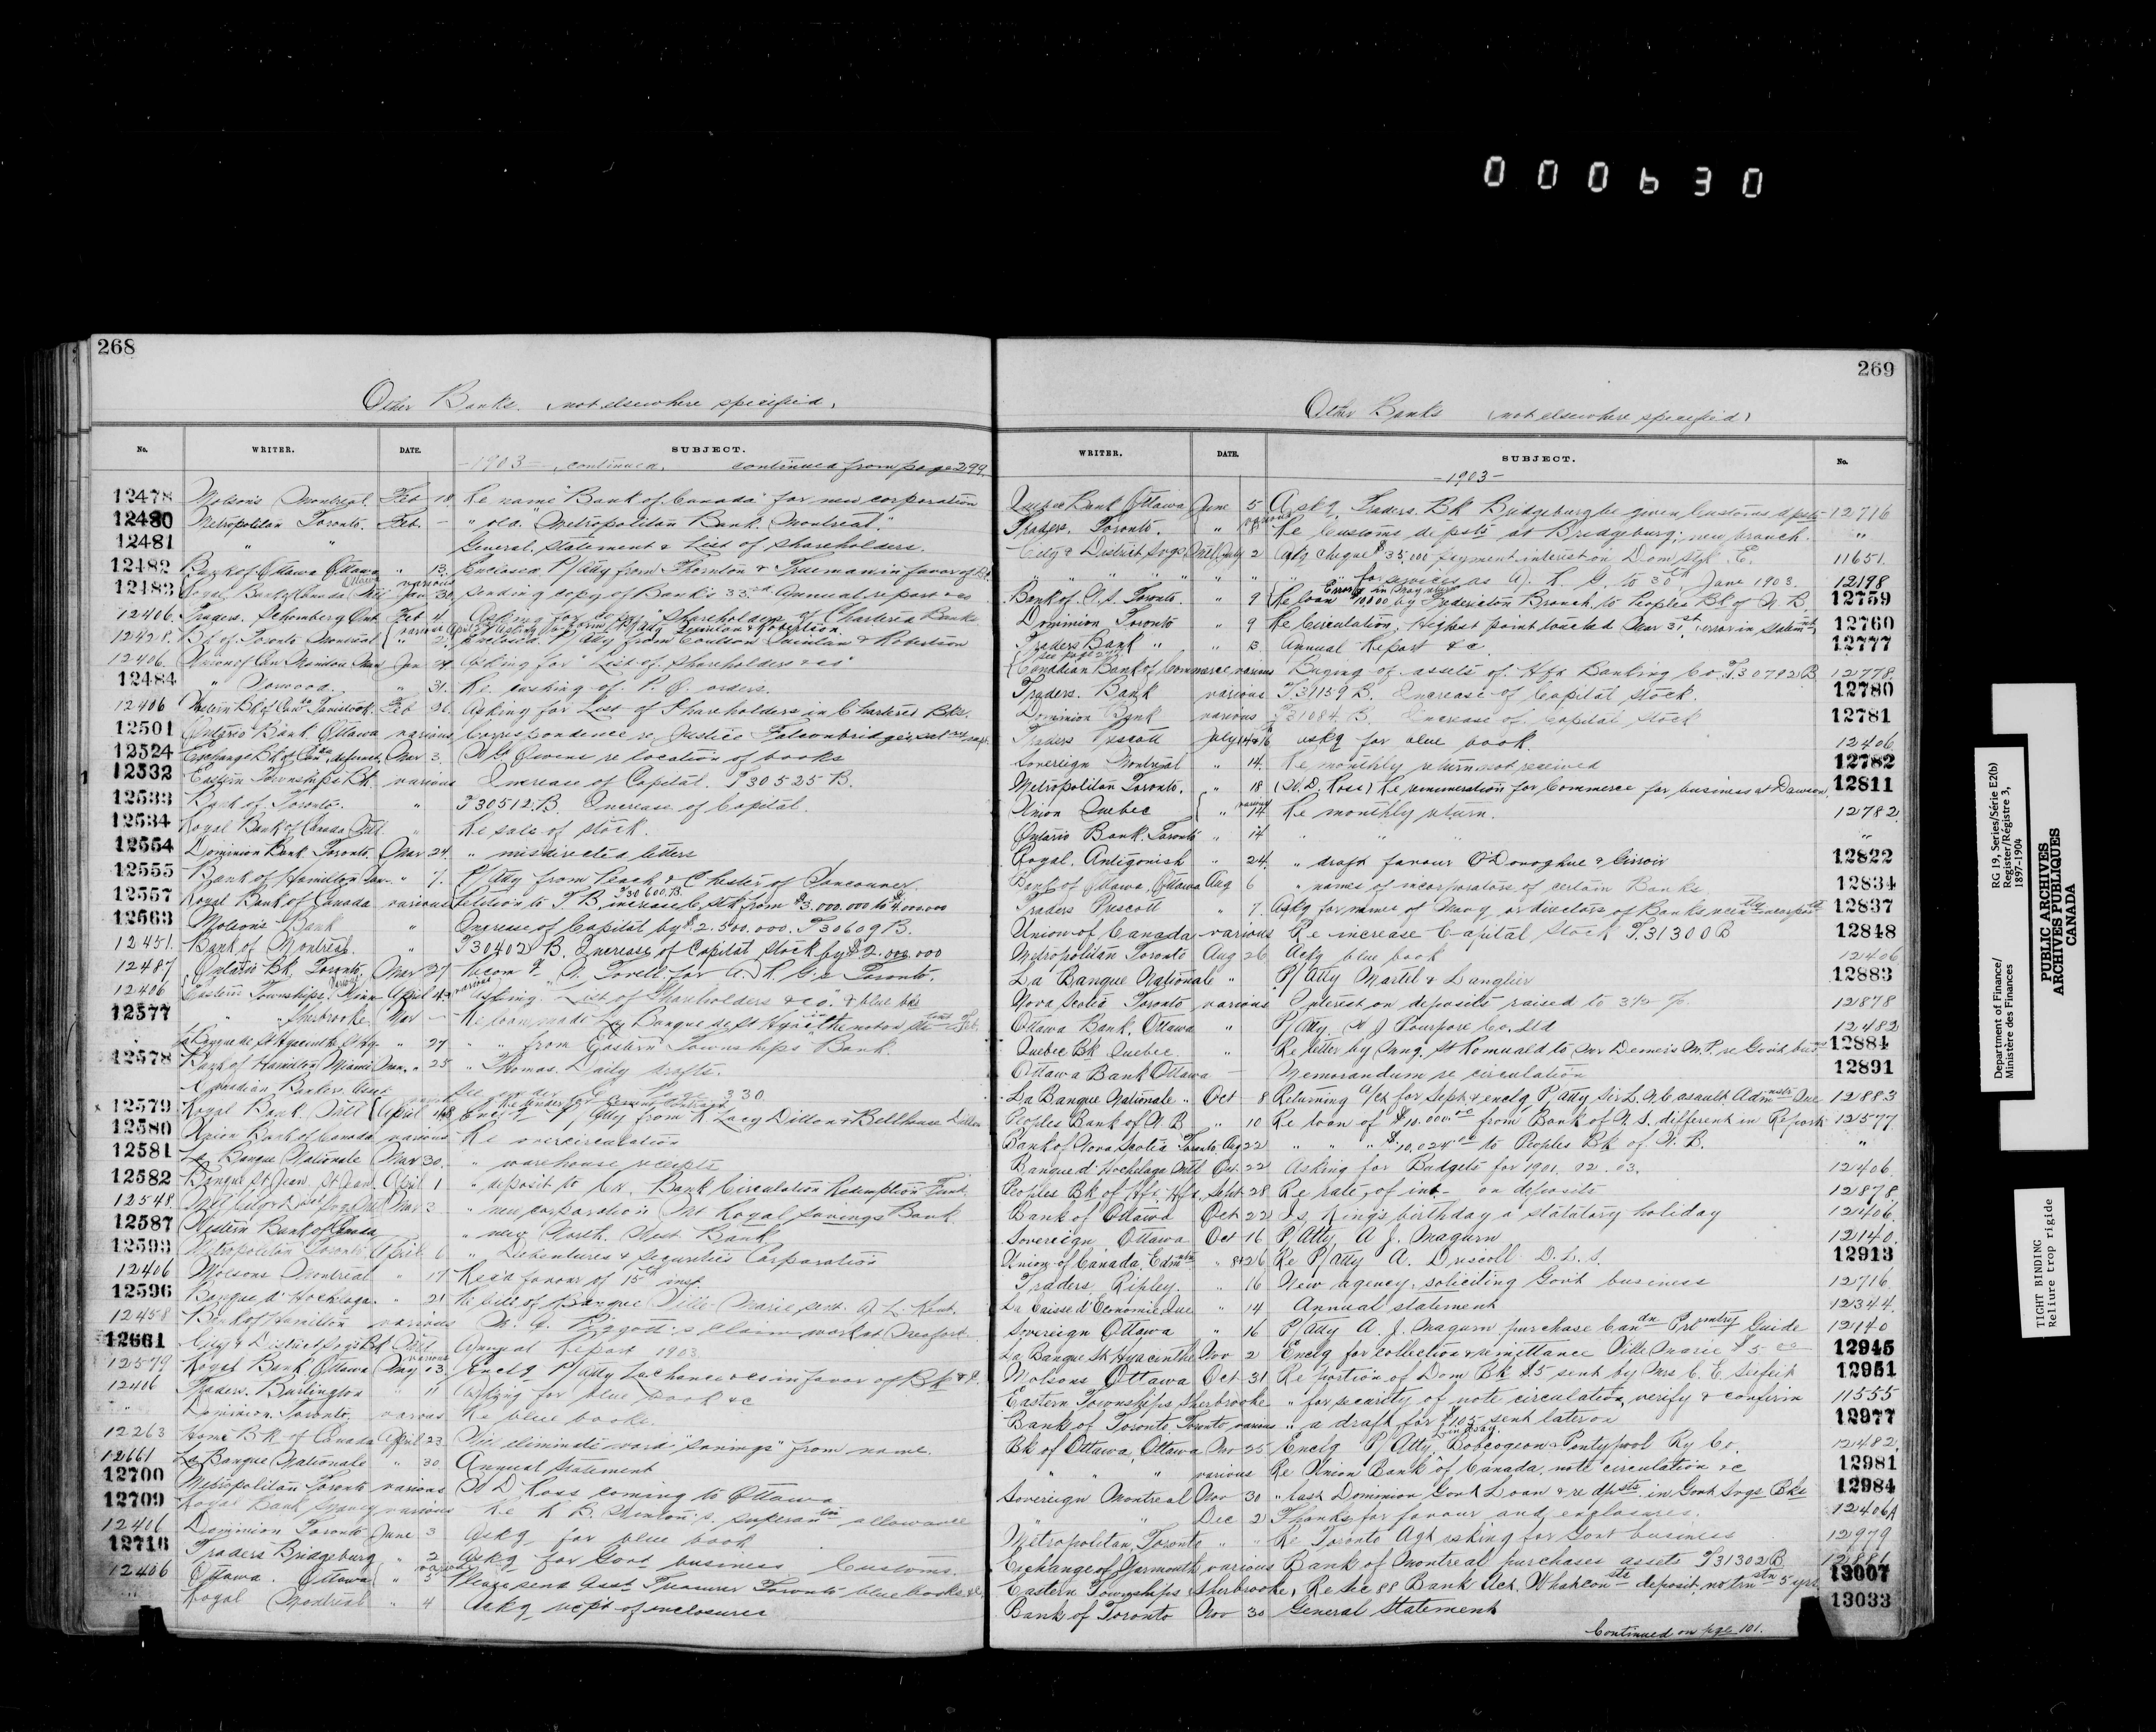 000630
268
Other Banks. (not elsewhere specified)
No. WRITER. DATE. SUBJECT.
-1903- continued. continued from page 299.
12478 Molsons Montreal. Feb 18 Re name "Bank of Canada" for new corporation
12480 Metropolitan Toronto. Feb. - " old "Metropolitan Bank. Montreal."
12481 " " General Statement & List of shareholders.
12482 Bank of Ottawa Ottawa " 13. Enclosed P/Atty from Thornton & Trueman in favor of Bk
12483 Royal Bank of Canada Ottawa various Jan 30, Sending copy of Bank's 33rd Annual report &c
12406 Traders. Schomberg Ont Feb 4. Asking for list of Shareholders of Chartered Banks
12428. Bk of Toronto Montreal Enclosed P/Atty from Coulson & Robertson
12406. Jan 14 Asking for "List of Shareholders &c"
12484 " Norwood. " 31. Re cashing of P. O. orders.
12406 Western Bk of Canada Tavistock. Feb 26. Asking for List of Shareholders in Chartered Bks.
12501 Ontario Bank. Ottawa various Correspondence re Justice Falconbridge's
12524 Exchange Bk of Can. Mar 3. re location of books
12532 Eastern Townships Bk. various Increase of Capital. T30525 B.
12533 Bank of Toronto. " T30512.B. Increase of Capital.
12534 Royal Bank of Canada Mtl " Re sale of stock.
12554 Dominion Bank Toronto. Mar 24. " misdirected letters
12555 Bank of Hamilton " 7. P/Atty from Leach & Chester of Vancouver.
12557 Royal Bank of Canada various Petition to T.B. increase C. Stk from $3.000.000 to $4.000.000 T30600.B.
12563 Molsons Bank " Increase of Capital by $2.500.000. T30609B.
12451. Bank of Montreal. " T30402 B. Increase of Capital Stock by $2.000.000
12487 Ontario Bk, Toronto, Mar 27. for A. R. G. Toronto.
12406 Eastern Townships. April various Asking. List of Shareholders &c. & blue bks
12577 " Sherbrooke. Mar - Re loan made by Banque de St Hyacinthe
La Banque de St Hyacinthe " 27 " " from Eastern Townships Bank.
12578 Bank of Hamilton Miami Man. " 25 " Thomas. Daily drafts.
Canadian Bankers Assct. See under 330
12579 Royal Bank. Mtl April Encl'g P/Atty from R Lacy Dillon & Bellhouse Dillon
12580 Union Bank of Canada various Re overcirculation
12581 La Banque Nationale Mar 30. " warehouse receipts
12582 Banque St Jean, St Jean. April 1 " deposit to Cr. Bank Circulation Redemption Fund.
12548. Mtl City & Dist Svgs Mtl Mar 3 " new corporation Mt Royal Savings Bank.
12587 Western Bank of Canada " new North West Bank
12593 Metropolitan Toronto April 6 " Debentures & Securities Corporation
12406 Molsons Montreal " 17 Rec'd favour of 15th inst.
12596 Banque d'Hochelaga " 21 Re bill of Banque Ville Marie sent. A. L. Kent.
12458 Bank of Hamilton various M. A. Piggott's claim work at Meaford
12661 City & District Svgs Bk Mtl Annual Report 1903.
12579 Royal Bank, Ottawa May various 13 Encl'g P/Atty Lachance &c in favor of Bk
12406 Traders. Burlington " 11 Asking for blue book &c
" Dominion Toronto, various Re blue books.
12263 Home Bk of Canada April 23 Will eliminate word "savings" from name.
12661 La Banque Nationale " 30. Annual Statement
12700 Metropolitan Toronto various W D Ross coming to Ottawa
12709 Royal Bank Sydney various Re superan'tn allowance
12406 Dominion Toronto June 3 Ask'g for blue book
12716 Traders Bridgeburg " 2 Ask'g for Govt business Customs.
12406 Ottawa. Ottawa " 3 Please send Asst Treasurer Toronto blue books
Royal Montreal " 4 Ackg rcpt of enclosures
269
Other Banks (not elsewhere specified)
WRITER. DATE. SUBJECT. No.
-1903-
Quebec Bank Ottawa June 5 Askg. Traders. Bk Bridgeburg be given Customs dpsts 12716
Traders. Toronto. " various Re Customs dpsts at Bridgeburg; new branch. "
City & District Svgs, Mtl July 2 cheque $35,000 payment interest on Dom Stk E. 11651.
" " " " " " " " for services as A. R. G. to 30th June 1903. 12198
Bank of N.S. Toronto. " 9 Re loan $10,000 by Fredericton Branch to Peoples Bk of N.B. Error in May return 12759
Dominion Toronto " 9 Re Circulation, Highest point touched Mar 31st, error in statemnt, 12760
Traders Bank " " 13. Annual Report &c. 12777
Canadian Bank of Commerce various Buying of assets of Hfx Banking Co. T.30782B 12778.
Traders. Bank various T31159 B. Increase of Capital Stock. 12780
Dominion Bank various T31084. B. Increase of Capital Stock 12781
Traders Prescott July 14&16 askg for blue book. 12406
Sovereign Montreal " 14. Re monthly return not received 12782
Metropolitan Toronto. " 18 (W. D. Ross) Re remuneration for Commerce for business at Dawson. 12811
Union Quebec various 14 Re monthly return. 12782.
Ontario Bank. Toronto " 14 " " " "
Royal. Antigonish " 24. " draft favour O'Donoghue & Girroir 12822
Bank of Ottawa, Ottawa Aug 6 " names of incorporators of certain Banks 12834
Traders Prescott " 7. Askg for names of Man'g or directors of Banks 12837
Union of Canada various Re increase Capital Stock T.31300B 12848
Metropolitan Toronto Aug 26 Ackg blue book 12406
La Banque Nationale " P/Atty Martel & Langlier 12883
Nova Scotia Toronto various Interest on deposits raised to 3½ %. 12878
Ottawa Bank. Ottawa " P/Atty. J Pourpore Co. Ltd 12482
Quebec Bk Quebec. " Re letter by Mng. St Romuald to Mr Demers M.P. re Govt bus'ns 12884
Ottawa Bank Ottawa - Memorandum re circulation 12891
La Banque Nationale " Oct 8 Returning a/ct for Sept & enclg P/Atty Sir L. N. Casault Admnstr Que 12883
Peoples Bank of N.B " 10 Re loan of $10.000.00 from Bank of N.S. different in Report 12577.
Bank of Nova Scotia Toronto Aug 22 " " " $10,024.00 to Peoples Bk of N.B. "
Banque d'Hochelaga Mtl Oct. 22 Asking for Budgets for 1901. 02. 03. 12406
Peoples Bk of Hfx, Hfx, Sept 28 Re rate of int. on deposits 12878.
Bank of Ottawa Oct 22 Is King's birthday a statutory holiday 12406.
Sovereign Ottawa Oct 16 P/Atty A. J. Magurn 12140.
Union of Canada, Edmntn " 8&26 Re P/Atty A. Driscoll D.L.S. 12913
Traders Ripley. " 16 New agency, soliciting Gov't business 12716
La Caisse d'Economie, Que " 14 Annual statement 12344.
Sovereign Ottawa " 16 P/Atty A. J. Magurn purchase Candn Prlmntry Guide 12140
La Banque St Hyacinthe Nov 2 Enclg for collection & remittance Ville Marie $5.00 12945
Molsons Ottawa Oct 31 Re portion of Dom Bk $5 sent by Mrs C. E. 12951
Eastern Townships, Sherbrooke " for security of note circulation, verify & confirm 11555
Bank of Toronto Toronto various " a draft for $105 sent later on 12977
Bk of Ottawa, Ottawa Nov 25 Enclg P/Atty. Lindsay. Bobcogeon & Pontypool Ry Co. 12482.
" " " various Re Union Bank of Canada, note circulation &c 12981
Sovereign Montreal Nov 30 " last Dominion Govt Loan & re dpsts in Govt Svgs Bks 12984
" " Dec 2 Thanks for favour and enclosures. 12406A
Metropolitan, Toronto " " Re Toronto Agt asking for Govt business 12979
Exchange of Yarmouth various Bank of Montreal purchases assets T31302B 12881
Eastern Townships Sherbrooke, Re Sec 88 Bank Act, What constts deposit, no trnsctn 5 yrs. 13007
Bank of Toronto Nov 30 General Statement 13033
Continued on page 101.
Department of Finance/ Ministère des Finances
RG 19, Series/Série E2(b) Register/Régistre 3, 1897-1904
PUBLIC ARCHIVES
ARCHIVES PUBLIQUES
CANADA
TIGHT BINDING
Reliure trop rigide